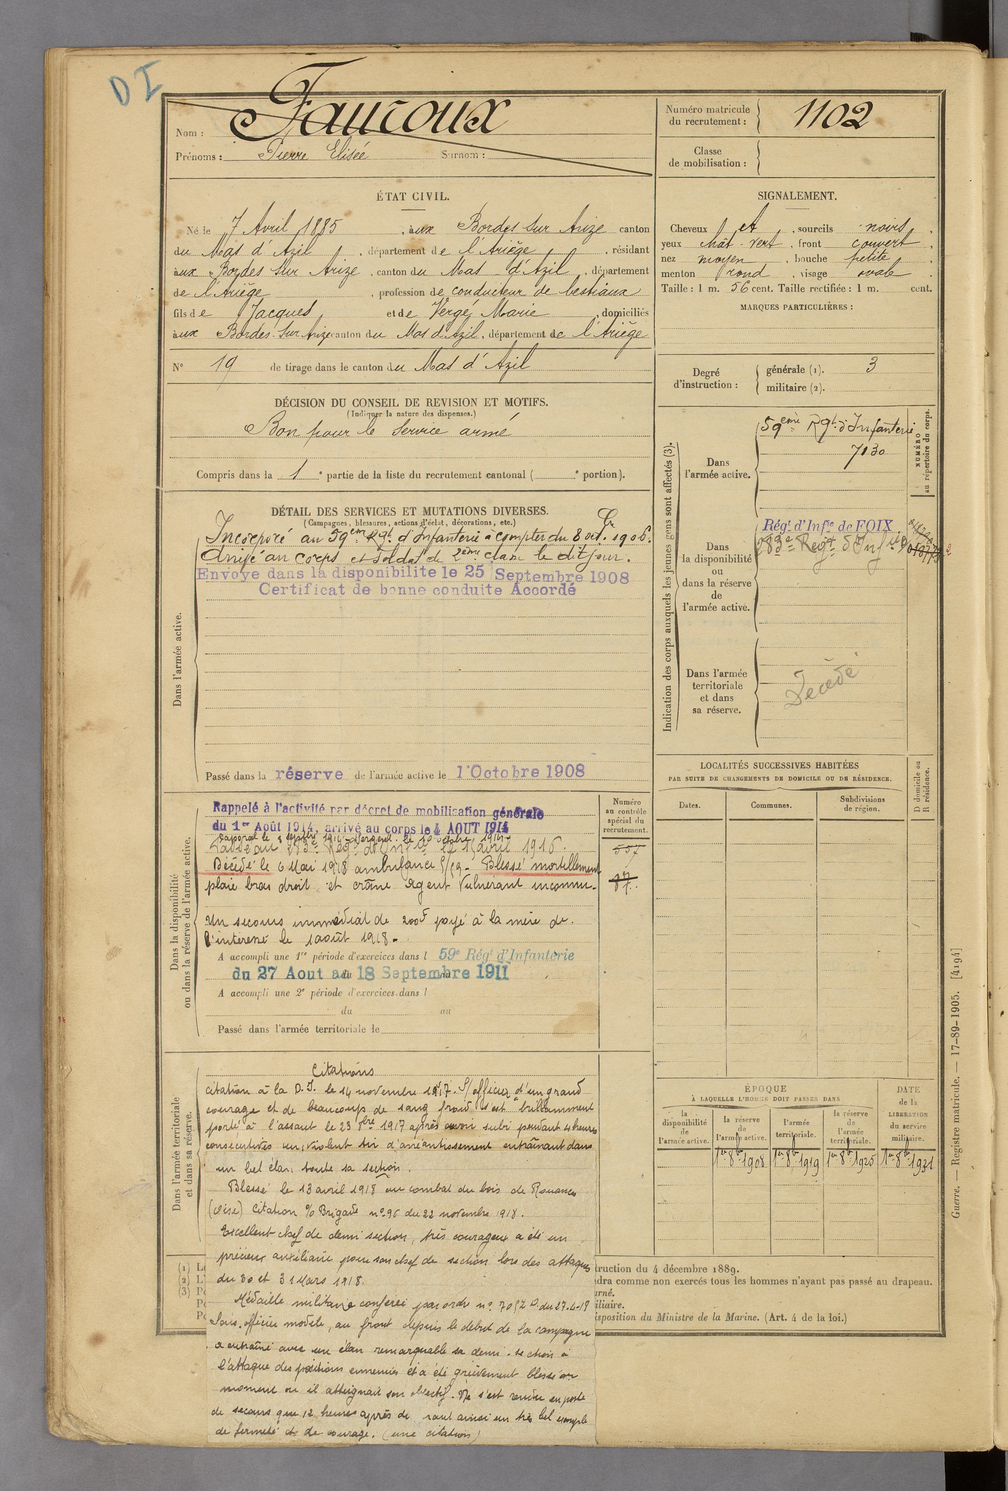 D I
Nom : Fauroux
Prénoms : Pierre Elisée Surnom :
Numéro matricule
du recrutement : 1102
Classe
de mobilisation :
ÉTAT CIVIL.
Né le 7 Avril 1885, aux Bordes sur Arize canton
du Mas d'Azil, département de l'Ariège, résidant
aux Bordes sur Arize, canton du Mas-d'Azil, département
de l'Ariège, profession de conducteur de bestiaux
fils de Jacques et de Vergé Marie, domiciliés
aux Bordes-sur-Arize canton du Mas d'Azil, département de l'Ariège
N° 19 de tirage dans le canton du Mas d'Azil
SIGNALEMENT.
Cheveux et, sourcils noirs,
yeux chât-vert, front couvert,
nez moyen, bouche petite,
menton rond, visage ovale
Taille : 1 m. 56 cent. Taille rectifiée : 1 m. cent.
MARQUES PARTICULIÈRES :
Degré
d'instruction :
générale (1). 3
militaire (2).
DÉCISION DU CONSEIL DE REVISION ET MOTIFS.
(Indiquer la nature des dispenses.)
Bon pour le service armé
Compris dans la 1e partie de la liste du recrutement cantonal ( e portion).
DÉTAIL DES SERVICES ET MUTATIONS DIVERSES.
(Campagnes, blessures, actions d'éclat, décorations, etc.)
Dans l'armée active.
Incorporé au 59ème Rgt d'Infanterie à compter du 8 oct. 1906.
Arrivé au corps et Soldat de 2ème classe le dit jour.
Envoyé dans la disponibilité le 25 Septembre 1908
Certificat de bonne conduite Accordé
Passé dans la réserve de l'armée active le 1er Octobre 1908
Indication des corps auxquels les jeunes gens sont affectés (3).
NUMÉRO
au répertoire du corps.
Dans
l'armée active.
59ème Rgt d'Infanterie
7130
Dans
la disponibilité
ou
dans la réserve
de
l'armée active.
Régt d'Infie de FOIX
283e Régt d'Infie
Dans l'armée
territoriale
et dans
sa réserve.
Décédé
LOCALITÉS SUCCESSIVES HABITÉES
PAR SUITE DE CHANGEMENTS DE DOMICILE OU DE RÉSIDENCE.
Dates.
Communes.
Subdivisions
de région.
D domicile ou
R résidence.
Dans la disponibilité
ou dans la réserve de l'armée active.
Numéro
au contrôle
spécial du
recrutement.
Rappelé à l'activité par décret de mobilisation générale
du 1er Août 1914, arrivé au corps le 4 AOUT 1914
Caporal le 1 septbre 1914 - Sergent le 10 octobre 1914.
Passé au 283e Rég d'Infie le 15 avril 1916.
Décédé le 6 Mai 1918 ambulance 5/59 - Blessé mortellement
plaie bras droit et crâne Agent Vulnérant inconnu.
Un secours immédiat de 200f payé à la mère de
l'intéressé le 1 août 1918.
A accompli une 1re période d'exercices dans l 59e Régt d'Infanterie
du 27 Aout au 18 Septembre 1911
A accompli une 2e période d'exercices dans l
du au
Passé dans l'armée territoriale le
ÉPOQUE
À LAQUELLE L'HOMME DOIT PASSER DANS
la
disponibilité
de
l'armée active.
la réserve
de
l'armée active.
l'armée
territoriale.
la réserve
de
l'armée
territoriale.
DATE
de la
LIBÉRATION
du service
militaire.
1er 8bre 1908
1er 8bre 1919
1er 8bre 1925
1er 8bre 1931
Dans l'armée territoriale
et dans sa réserve.
Citations
Citation à la D.I. le 14 novembre 1917. S/officier d'un grand
courage et de beaucoup de sang froid, s'est brillamment
porté à l'assaut le 23 8bre 1917 après avoir subi pendant 4 heures
consécutives un violent tir d'anéantissement entraînant dans
un bel élan toute sa section.
Blessé le 13 avril 1918 au combat du bois de
(Oise) Citation O/ Brigade n° 96 du 22 novembre 1918.
Excellent chef de demi section, très courageux a été un
précieux auxiliaire pour son chef de section lors des attaques
du 30 et 31 Mars 1918.
Médaille militaire conférée par ordre n° du 27-4-18
Sous-officier modèle, au front depuis le début de la campagne
a entraîné avec un élan remarquable sa demi-section à
l'attaque des positions ennemies et a été grièvement blessé au
moment où il atteignait son objectif. Ne s'est rendu au poste
de secours que 12 heures après donnant ainsi un très bel exemple
de fermeté et de courage. (une citation)
(1) L
(2) L
(3) P
truction du 4 décembre 1889.
ndra comme non exercés tous les hommes n'ayant pas passé au drapeau.
rné.
iliaire.
isposition du Ministre de la Marine. (Art. 4 de la loi.)
Guerre. — Registre matricule. — 17-89-1905. [4194]